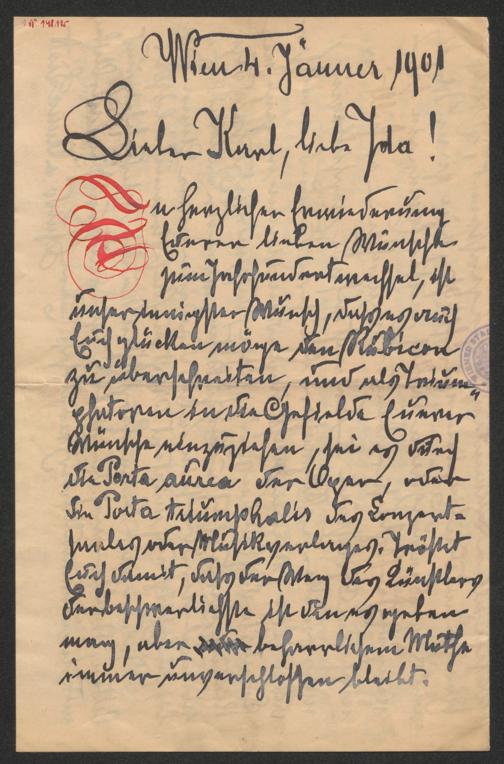 № 148.125
Wien 4. Jänner 1901
Lieber Karl, liebe Ida!
In herzlicher Erwiederung
Euerer lieben Wünsche
zum Jahrhundertwechsel, ist
unser innigster Wunsch, dass es auch
Euch glücken möge den Rubicon
zu überschreiten, und als Trium-
phatoren in die Gefielde Euerer
Wünsche einzuziehen, sei es durch
die Porta aurea der Oper, oder
die Porta triumphalis des Konzert-
saales oder Musikverlages. Tröstet
Euch damit, dass der Weg des Künstlers
der beschwerlichste ist den es geben
mag, aber beharrlichem Muthe
immer unverschlossen bleibt.